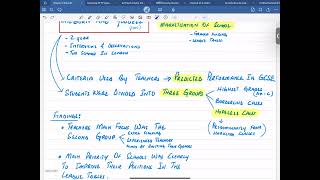 (2000)
MARKETISATION OF SCHOOL
- FORMULA FUNDING
- LEAGUE TABLES
- 2-YEAR
- INTERVIEWS & OBSERVATIONS
- TWO SCHOOLS IN LONDON
• CRITERIA USED BY TEACHERS → PREDICTED PERFORMANCE IN GCSE
• STUDENTS WERE DIVIDED INTO THREE GROUPS
HIGHEST GRADES (A*-C)
BORDERLINE CASES
HOPELESS CASES
FINDINGS:
• TEACHERS MAIN FOCUS WAS THE SECOND GROUP
- EXPERIENCED TEACHERS
• MAIN PRIORITY OF SCHOOLS WAS CLEARLY
TO IMPROVE THEIR POSITIONS IN THE
LEAGUE TABLES.